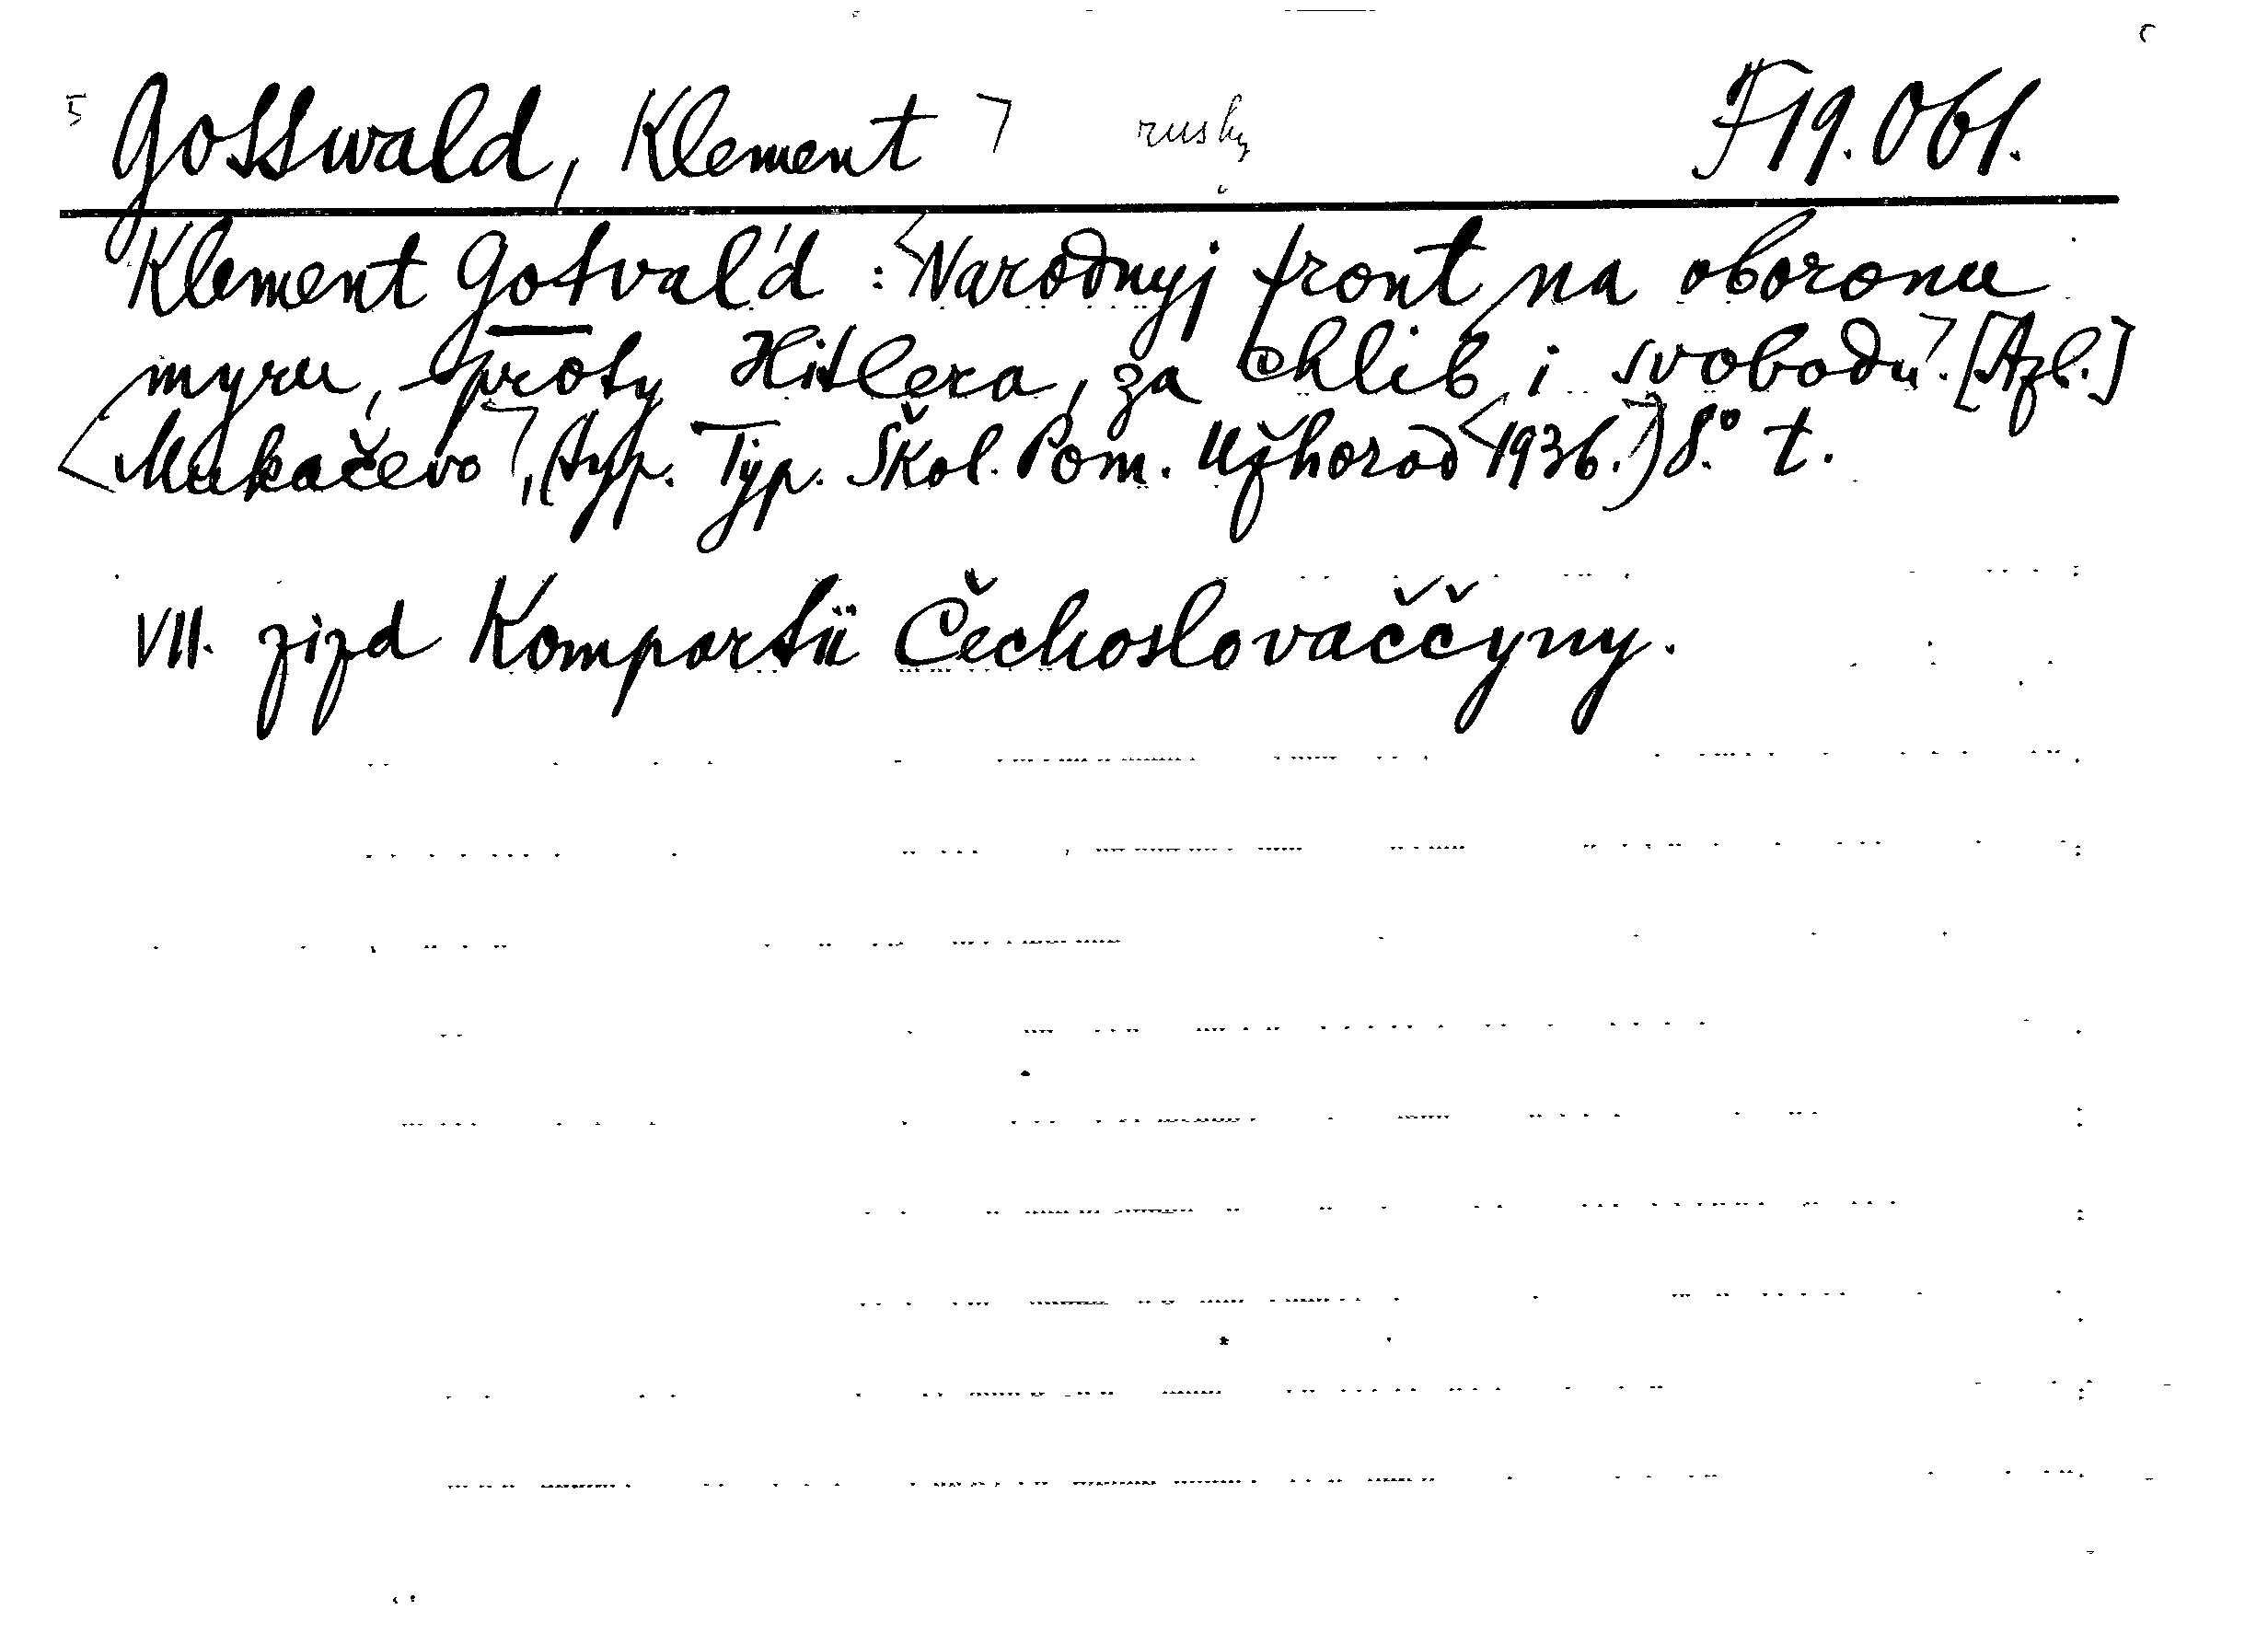 Gottwald, Klement rusky F 19.061.
Klement Gotval'd : Narodnyj front na oboronu
myru, proty Hitlera, za chlib i svobodu. [Azb.]
Mukačevo, (typ. Typ. Škol. Pom. Užhorod 1936.) 8.° t.
VII. zizd Kompartii Čechoslovaččyny.